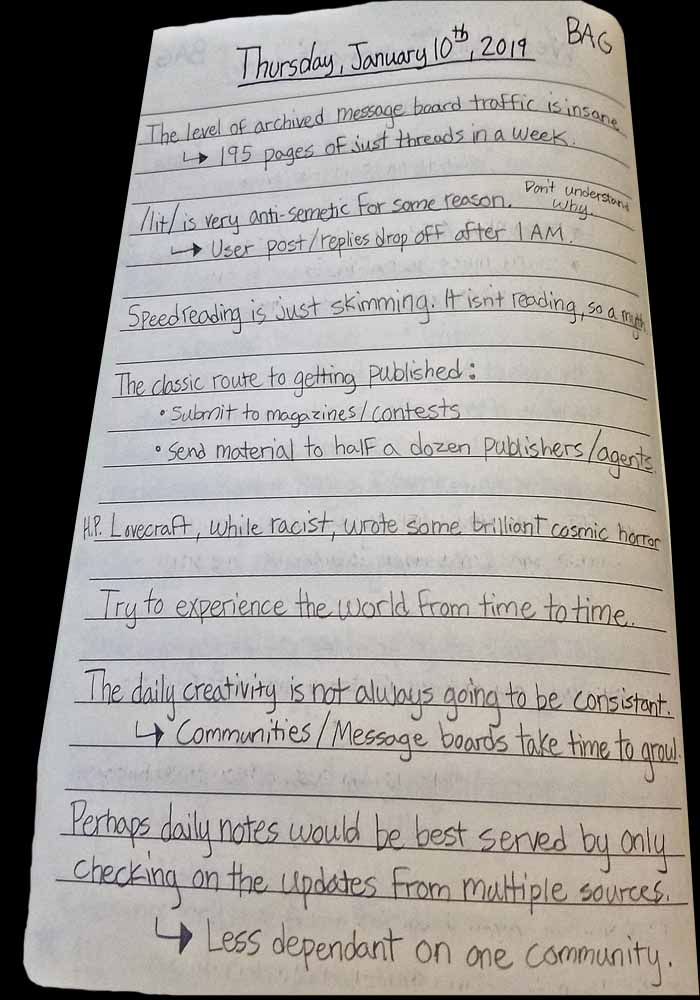 BAG
Thursday, January 10th, 2019
The level of archived message board traffic is insane
↳ 195 pages of just threads in a week.
/lit/ is very anti-semetic for some reason. Don't understand why.
↳ User post/replies drop off after 1 AM.
Speedreading is just skimming. It isn't reading, so a myth.
The classic route to getting published:
• Submit to magazines/contests
• Send material to half a dozen publishers/agents
H.P. Lovecraft, while racist, wrote some brilliant cosmic horror
Try to experience the world from time to time.
The daily creativity is not always going to be consistant.
↳ Communities/Message boards take time to grow.
Perhaps daily notes would be best served by only
checking on the updates from multiple sources.
↳ Less dependant on one community.